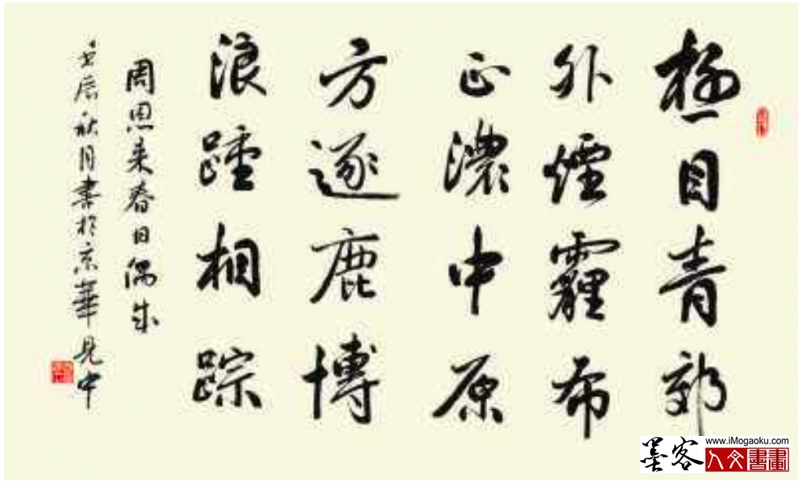 極目青郊
外煙霾布
正濃中原
方逐鹿博
浪踵相踪
周恩来春日偶成
壬辰秋月書於京華見中
www.iMogaoku.com
墨客人文書畫